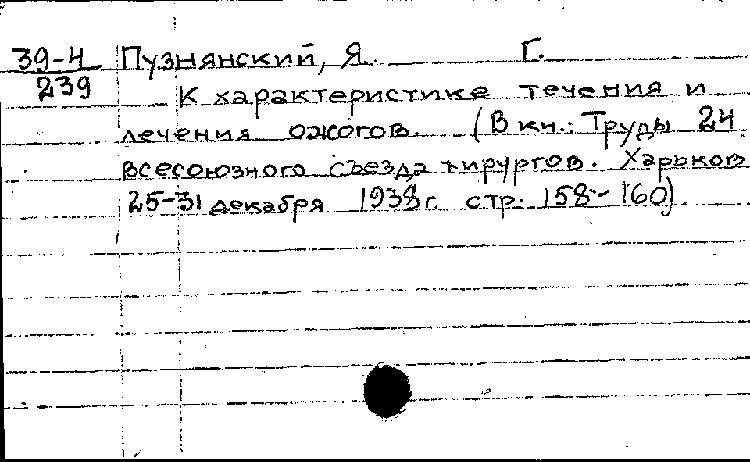 39-4 Пузнянский, Я. Г.
239
К характеристике течения и
лечения ожогов. (В кн.: Труды 24
всесоюзного съезда хирургов. Харьков
25-31 декабря 1938 г. стр. 158-160).